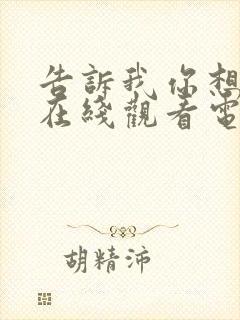 告訴我你想
在綫觀看電
胡精沛